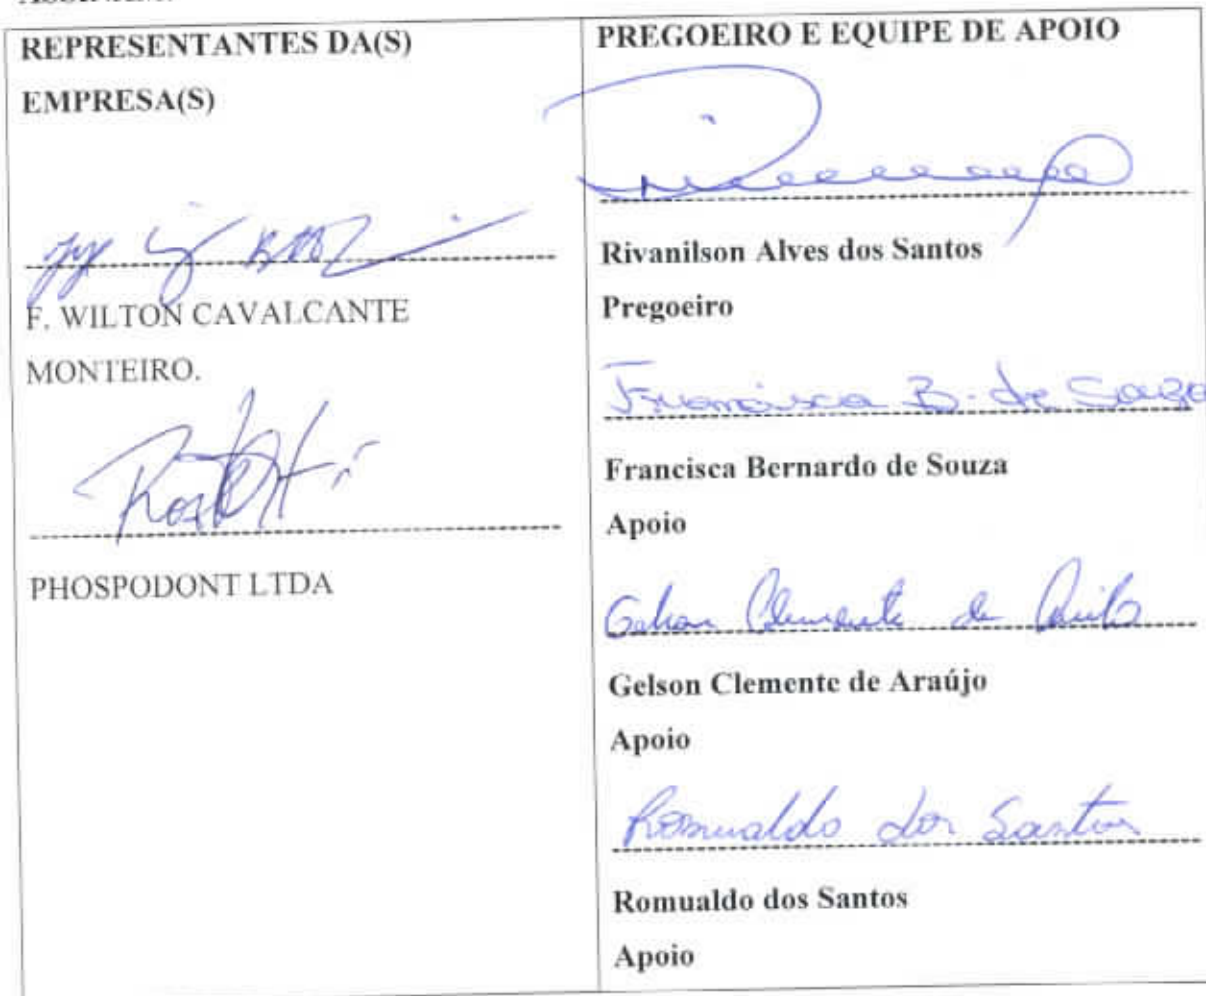 REPRESENTANTES DA(S)
EMPRESA(S)
F. WILTON CAVALCANTE
MONTEIRO.
PHOSPODONT LTDA
PREGOEIRO E EQUIPE DE APOIO
Rivanilson Alves dos Santos
Pregoeiro
Francisca B. de Souza
Francisca Bernardo de Souza
Apoio
Gelson Clemente de Araújo
Gelson Clemente de Araújo
Apoio
Romualdo dos Santos
Romualdo dos Santos
Apoio